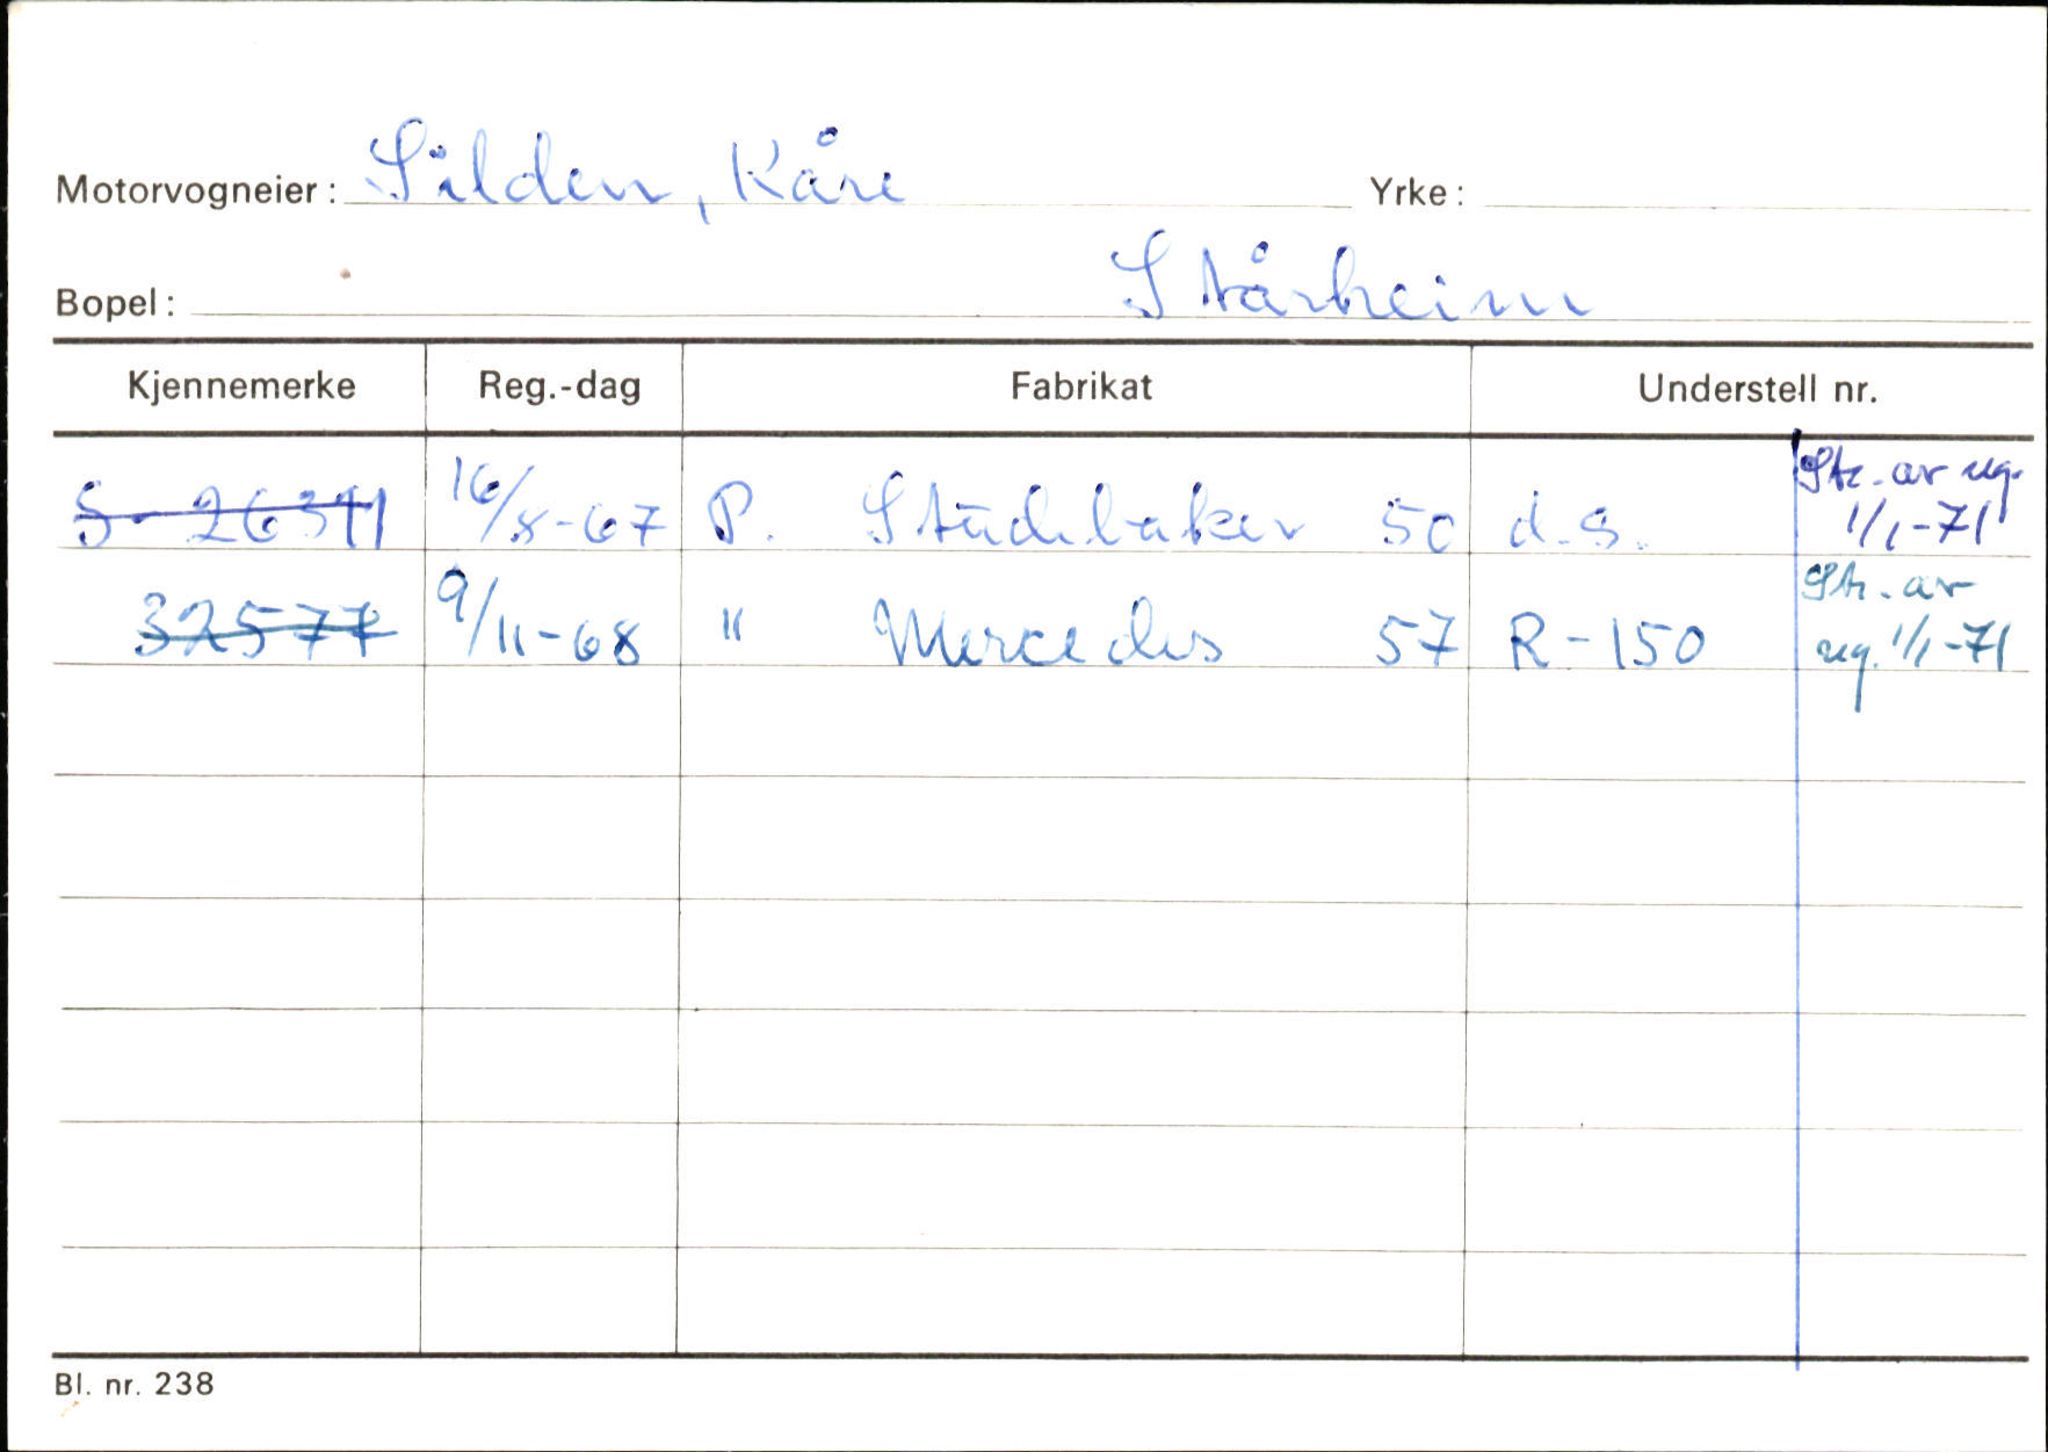 Motorvogneier: Silden, Kåre Yrke:
Bopel: Stårheim
Kjennemerke Reg.-dag Fabrikat Understell nr.
S-26391 16/8-67 P. Studebaker 50 d.s. Str. av reg. 1/1-71
32577 9/11-68 " Mercedes 57 R-150 Str. av reg. 1/1-71
Bl. nr. 238